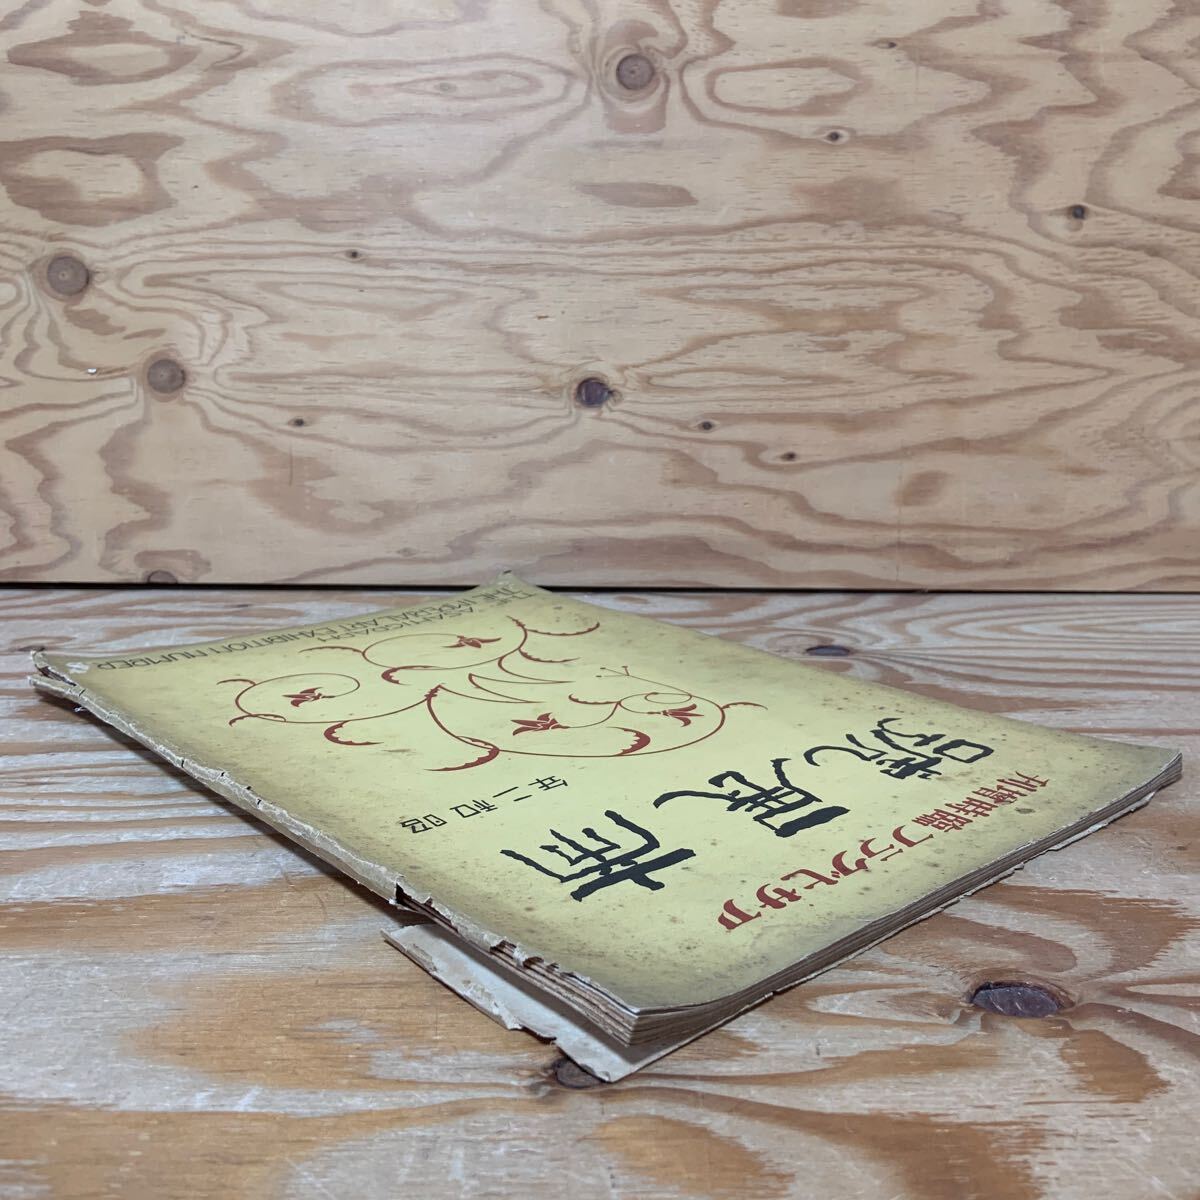 アサヒグラフ臨時增刊
帝展號
昭和二年
THE ASAHIGRAPH
THE IMPERIAL ART EXHIBITION NUMBER